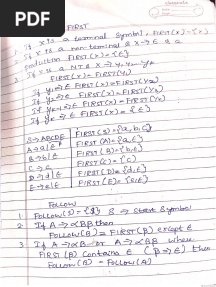 PDF
FIRST
1. If x is a terminal symbol FIRST(x)={x}
2. If x is a non-terminal & x→ε is a
production FIRST(x)={ε}
3. If x is a NT &
FIRST(x)=FIRST(Y1)
If Y1⇒ε FIRST(x)=FIRST(Y2)
FIRST(x)={ε}
S→ABCDE FIRST(S)={a,b,c}
A→a|ε FIRST(A)={a,ε}
B→b|ε FIRST(B)={b,ε}
C→c FIRST(C)={c}
D→d|ε FIRST(D)={d,ε}
E→e|ε FIRST(E)={e,ε}
FOLLOW
1. FOLLOW(S)={$} S → Start Symbol
2. If A→αBβ then
FOLLOW(B)=FIRST(β) except ε
3. If A→αB or A→αBβ where
FIRST(β) contains ε (β⇒ε) then
FOLLOW(B)=FOLLOW(A)